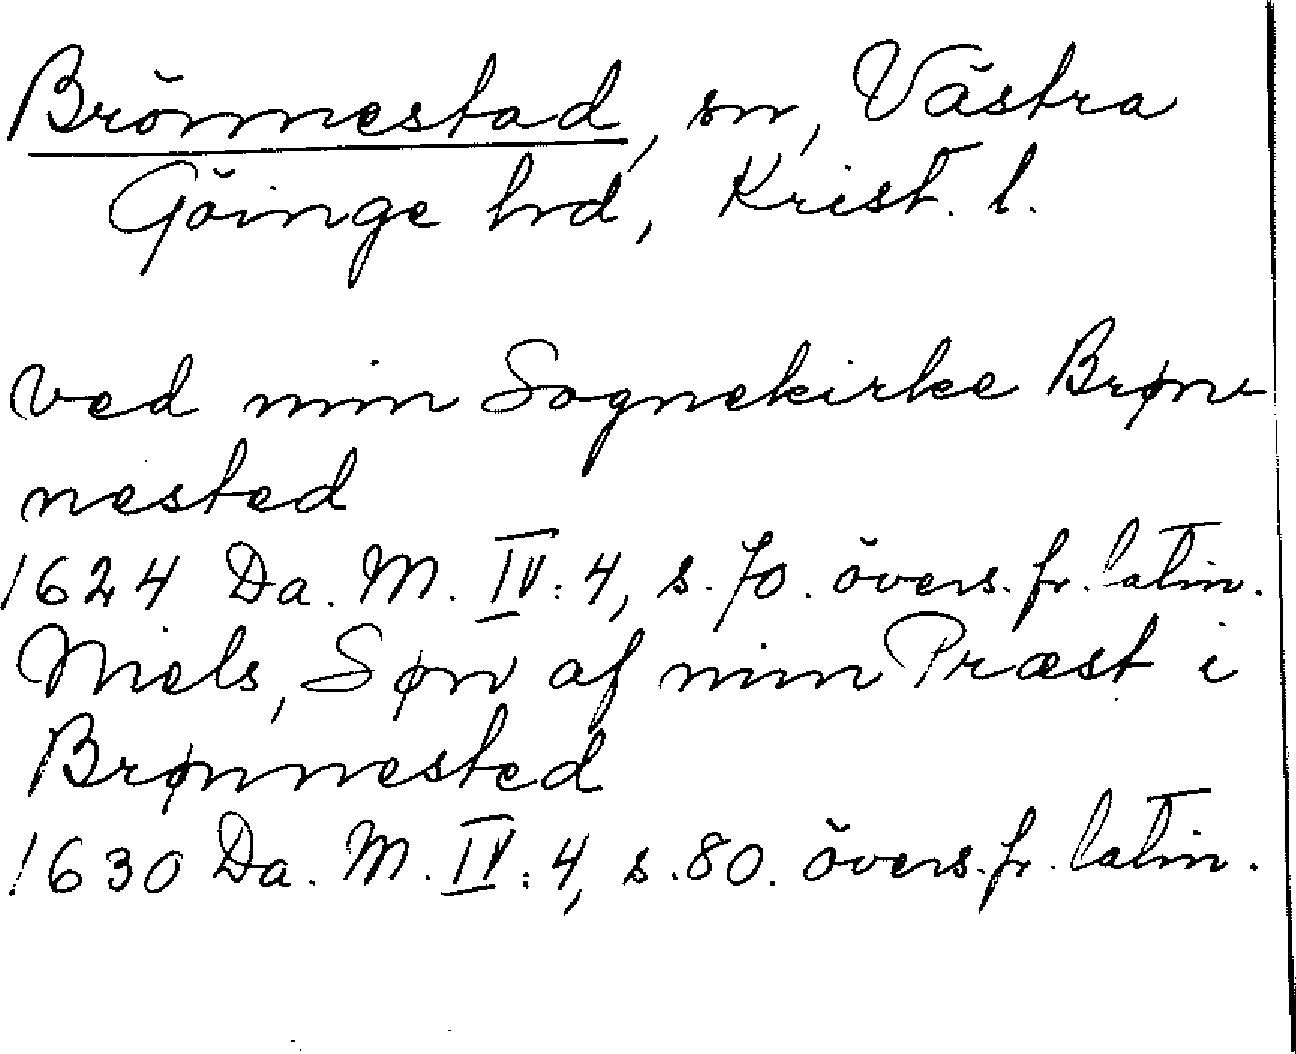 Brönnestad, sn, Västra
Göinge hrd, Krist. l.
ved min Sognekirke Brøn-
nested
1624 Da. M. IV: 4, s. 70. övers. fr. latin.
Niels, Søn af min Præst i
Brønnested
1630 Da. M. IV: 4, s. 80. övers. fr. latin.